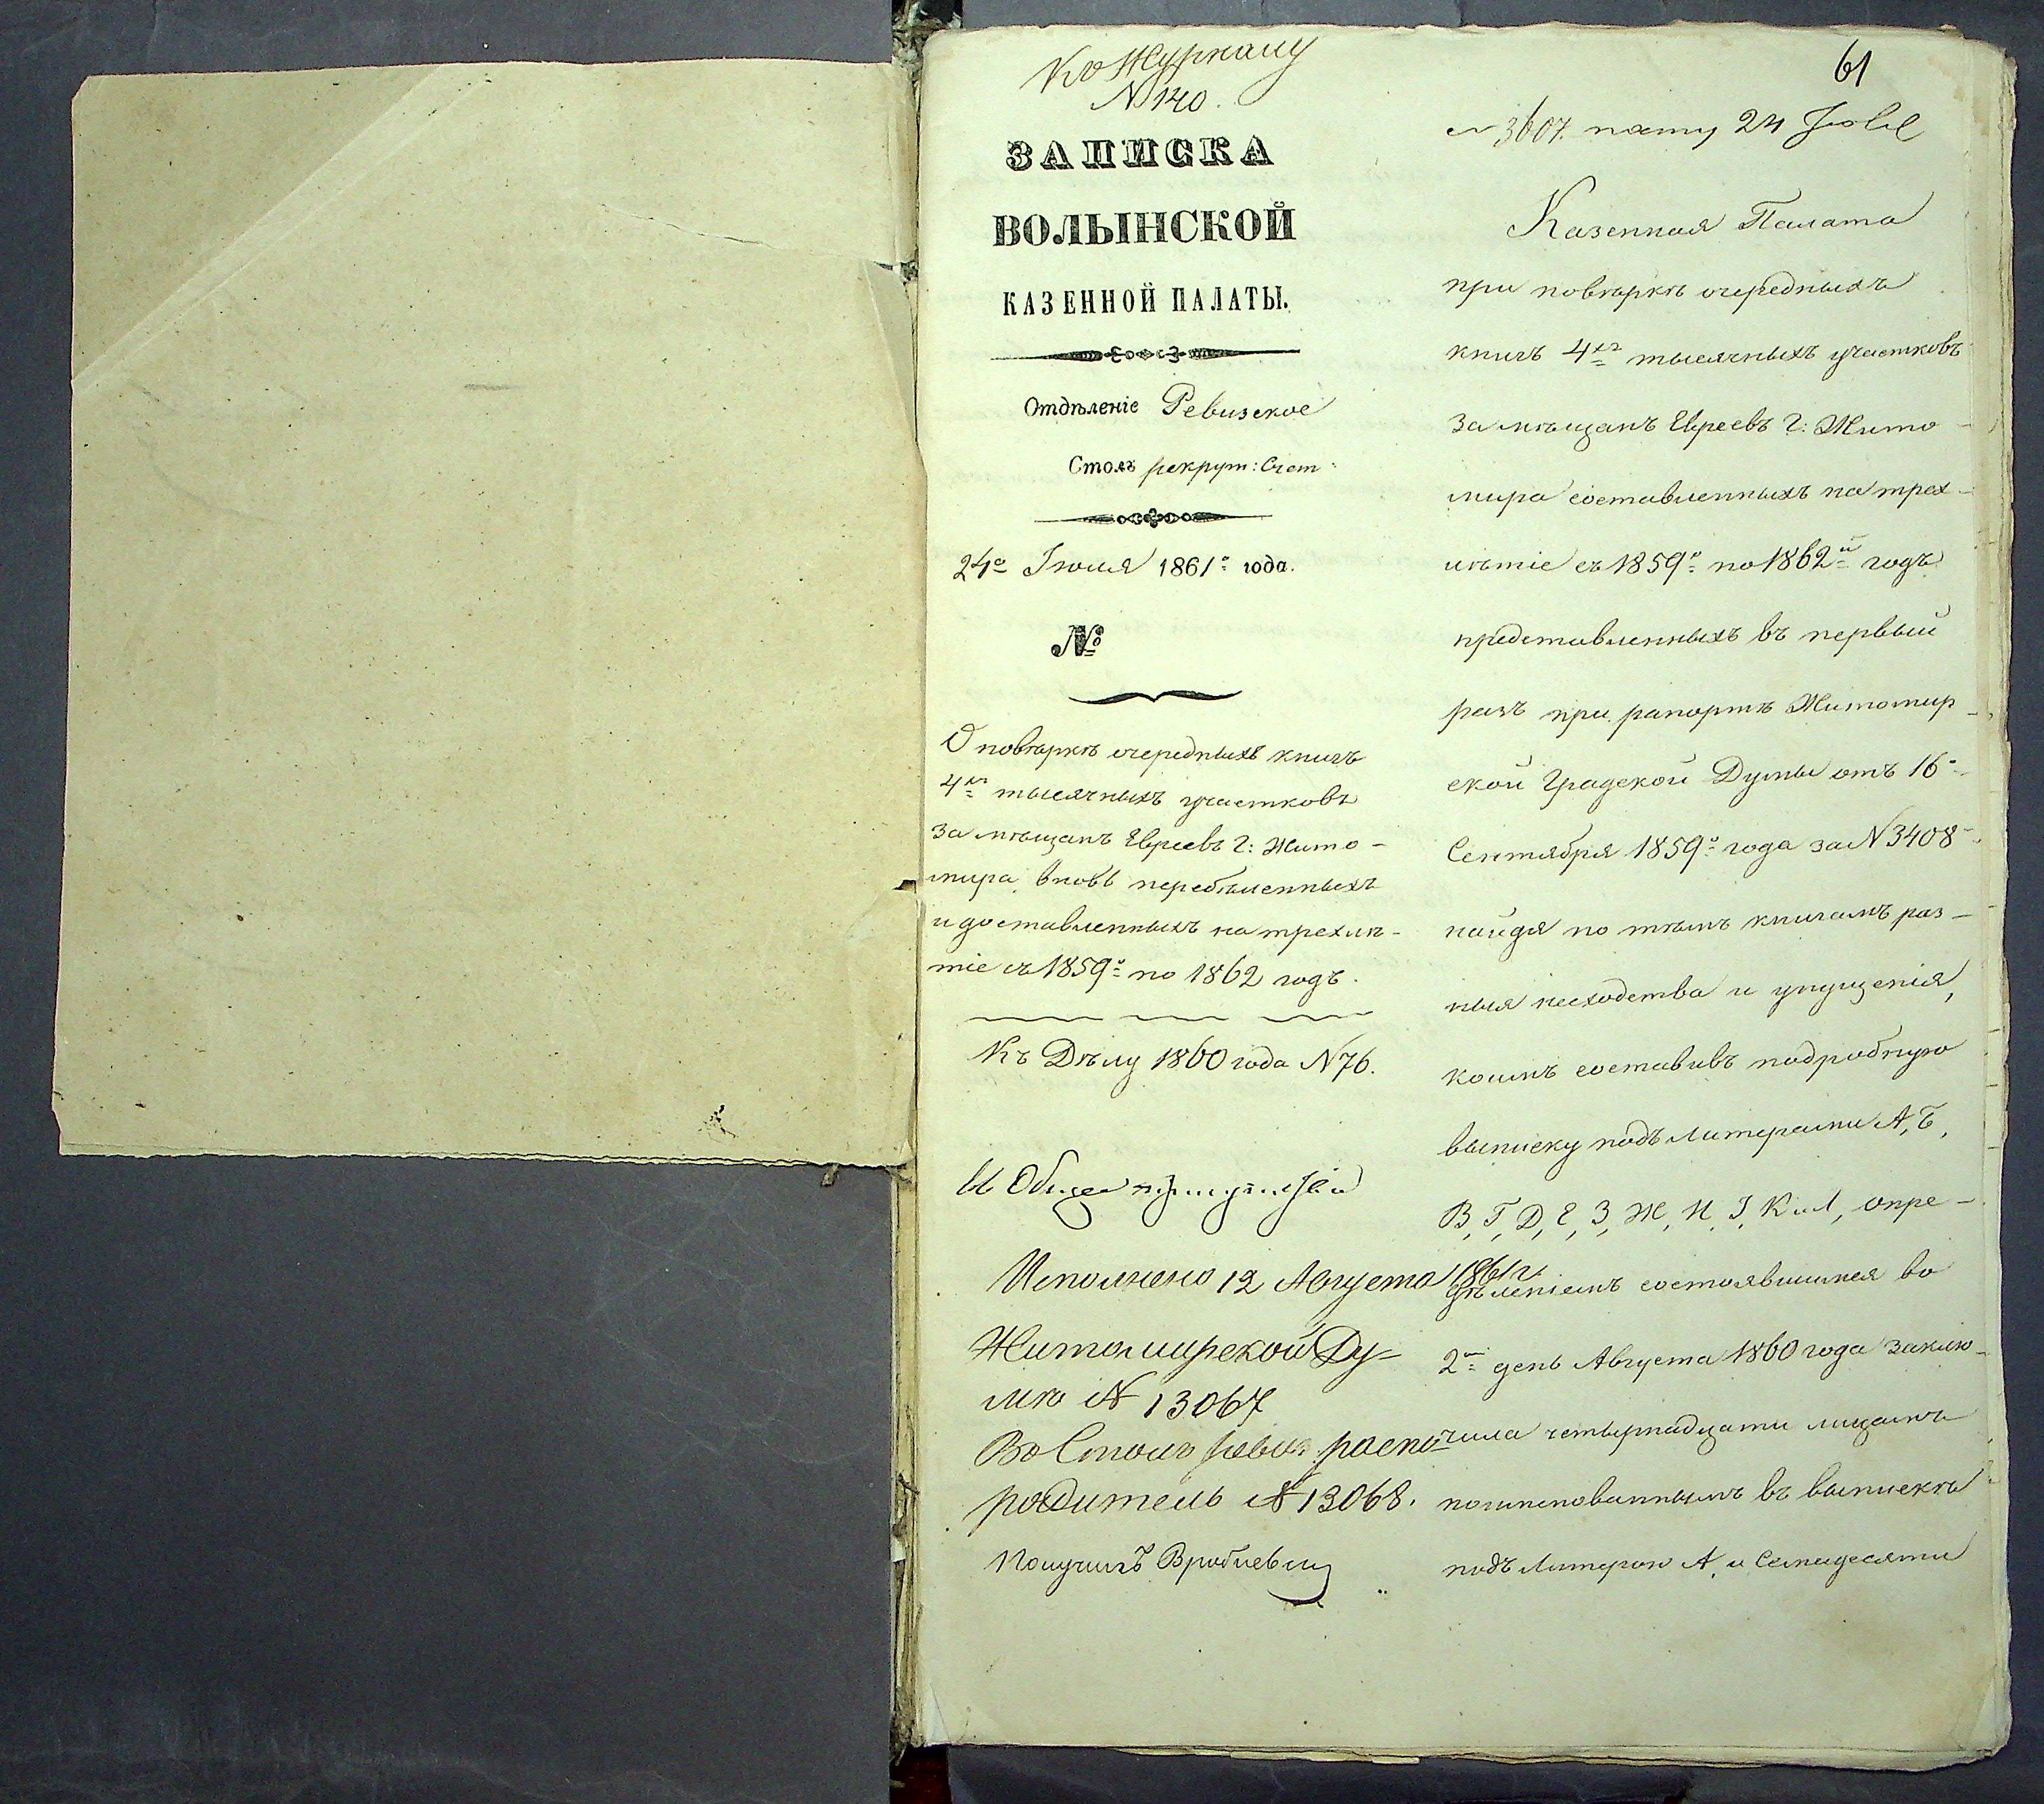 Ко Журналу
N 140.
ЗАПИСКА
ВОЛЫНСКОЙ
КАЗЕННОЙ ПАЛАТЫ.
Отдѣленіе Ревизское
Столъ рекрут: Счет:
24го Іюля 1861го года.
№
О повѣркѣ очередныхъ книгъ
4хъ тысячныхъ участковъ
за мѣщанъ Евреевъ г: Жито-
мира, вновь передѣленныхъ
и доставленныхъ на трехлѣ-
тіе съ 1859го по 1862 годъ.
Къ Дѣлу 1860 года N 76.
Исполнено 12 Августа 1861 г.
Житомирской Ду-
мѣ N 13067
Во Столъ распо-
родитель N 13068.
Получилъ
61
N 3607. 24
Казенная Палата
при повѣркѣ очередныхъ
книгъ 4хъ тысячныхъ участковъ
за мѣщанъ Евреевъ г: Жито-
мира составленныхъ на трех-
лѣтіе съ 1859го по 1862й годъ
представленныхъ въ первый
разъ при рапортѣ Житомир-
ской Градской Думы отъ 16го
Сентября 1859го года за N 3408
найдя по тѣмъ книгамъ раз-
ныя несходства и упущенія,
коимъ составивъ подробную
выписку подъ Литерами А, Б,
В, Г, Д, Е, З, Ж, И, І, К и Л, опре-
дѣленіемъ состоявшимся во
2й день Августа 1860 года заклю-
чила четырнадцати лицамъ
поименованнымъ въ выпискѣ
подъ Литерою А, и Семидесяти